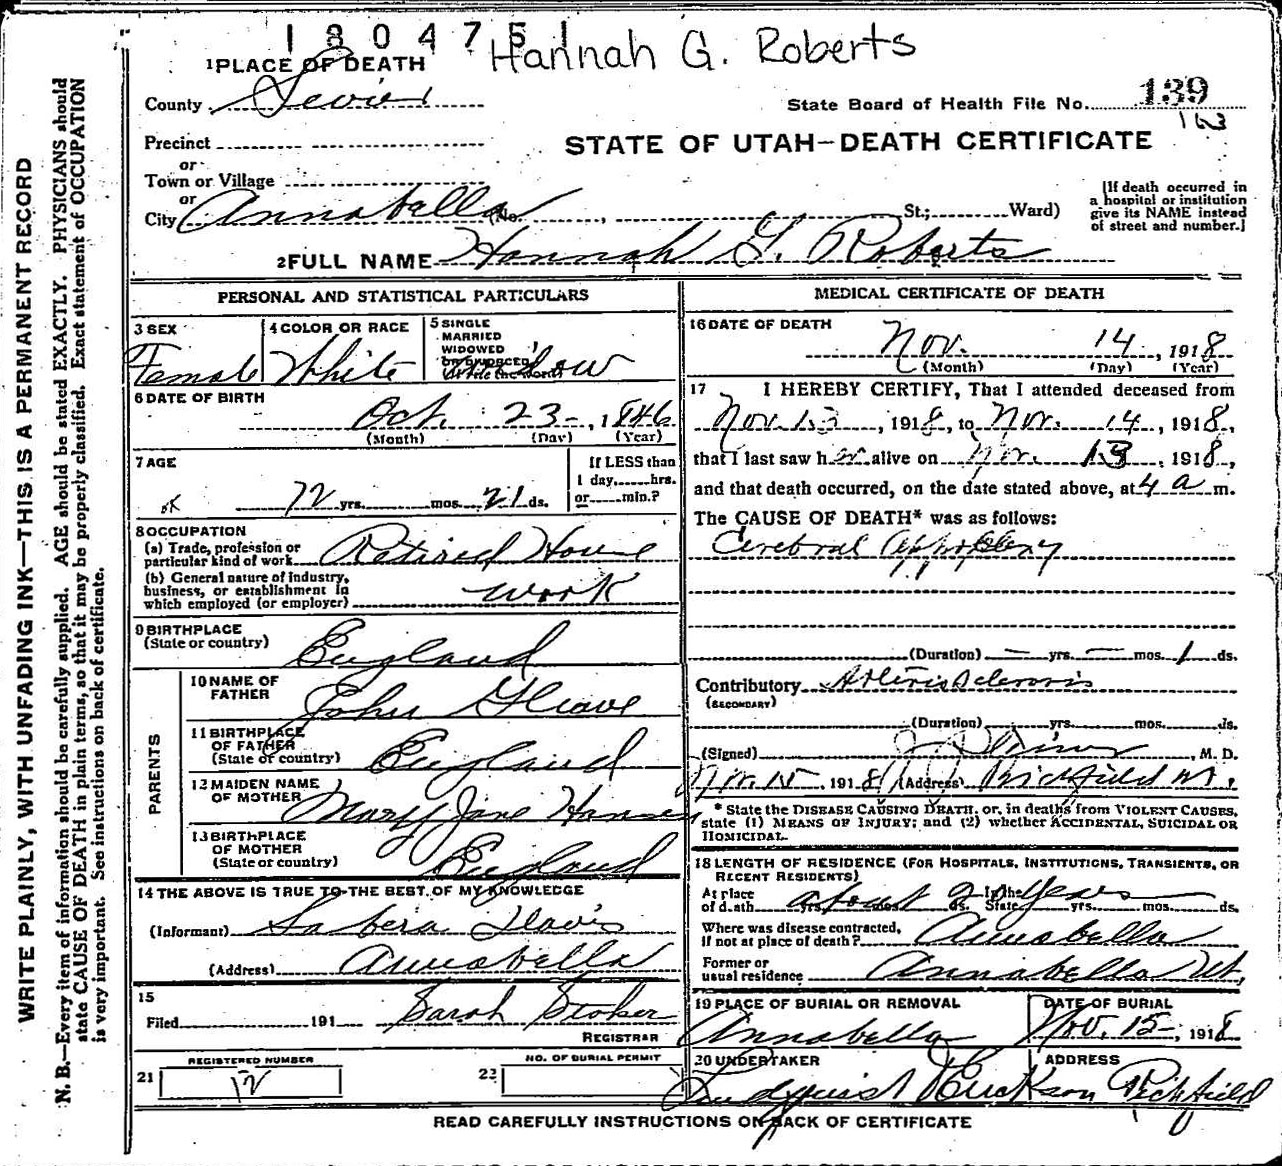 1 8 0 4 7 5 1
Hannah G. Roberts
1 PLACE OF DEATH
County Sevier
State Board of Health File No. 139
Precinct
or
Town or Village
or
City Annabella (No. , St.; Ward)
STATE OF UTAH—DEATH CERTIFICATE
[If death occurred in
a hospital or institution
give its NAME instead
of street and number.]
2 FULL NAME Hannah G. Roberts
PERSONAL AND STATISTICAL PARTICULARS
3 SEX
Female
4 COLOR OR RACE
White
5 SINGLE
MARRIED
WIDOWED
OR DIVORCED
(Write the word)
Widow
6 DATE OF BIRTH
Oct. 23-, 1846
(Month) (Day) (Year)
7 AGE
72 yrs. mos. 21 ds.
If LESS than
1 day, hrs.
or min.?
8 OCCUPATION
(a) Trade, profession or
particular kind of work Retired House
(b) General nature of industry,
business, or establishment in
which employed (or employer) work
9 BIRTHPLACE
(State or country) England
PARENTS
10 NAME OF
FATHER John Gleave
11 BIRTHPLACE
OF FATHER
(State or country) England
12 MAIDEN NAME
OF MOTHER Mary Jane Hansen
13 BIRTHPLACE
OF MOTHER
(State or country) England
14 THE ABOVE IS TRUE TO THE BEST OF MY KNOWLEDGE
(Informant) Sabera Davis
(Address) Annabella
15
Filed 191 Sarah Stoker
REGISTRAR
REGISTERED NUMBER
21 12
NO. OF BURIAL PERMIT
22
MEDICAL CERTIFICATE OF DEATH
16 DATE OF DEATH
Nov. 14, 1918
(Month) (Day) (Year)
17 I HEREBY CERTIFY, That I attended deceased from
Nov 13, 1918, to Nov. 14, 1918,
that I last saw her alive on Nov. 13, 1918,
and that death occurred, on the date stated above, at 4 a m.
The CAUSE OF DEATH* was as follows:
Cerebral Appoplexy
(Duration) — yrs. — mos. 1 ds.
Contributory Arteriosclerosis
(SECONDARY)
(Duration) yrs. mos. ds.
(Signed) , M. D.
Nov. 15, 1918 (Address) Richfield Ut.
* State the DISEASE CAUSING DEATH, or, in deaths from VIOLENT CAUSES,
state (1) MEANS OF INJURY; and (2) whether ACCIDENTAL, SUICIDAL OR
HOMICIDAL.
18 LENGTH OF RESIDENCE (FOR HOSPITALS, INSTITUTIONS, TRANSIENTS, OR
RECENT RESIDENTS)
At place
of death yrs. mos. ds. In the State yrs. mos. ds.
about 20 years
Where was disease contracted,
if not at place of death? Annabella
Former or
usual residence Annabella Ut.
19 PLACE OF BURIAL OR REMOVAL
Annabella
DATE OF BURIAL
Nov. 15-, 1918
20 UNDERTAKER
Lundquist Erickson
ADDRESS
Richfield
READ CAREFULLY INSTRUCTIONS ON BACK OF CERTIFICATE
WRITE PLAINLY, WITH UNFADING INK—THIS IS A PERMANENT RECORD
N. B.—Every item of information should be carefully supplied. AGE should be stated EXACTLY. PHYSICIANS should
state CAUSE OF DEATH in plain terms, so that it may be properly classified. Exact statement of OCCUPATION
is very important. See instructions on back of certificate.